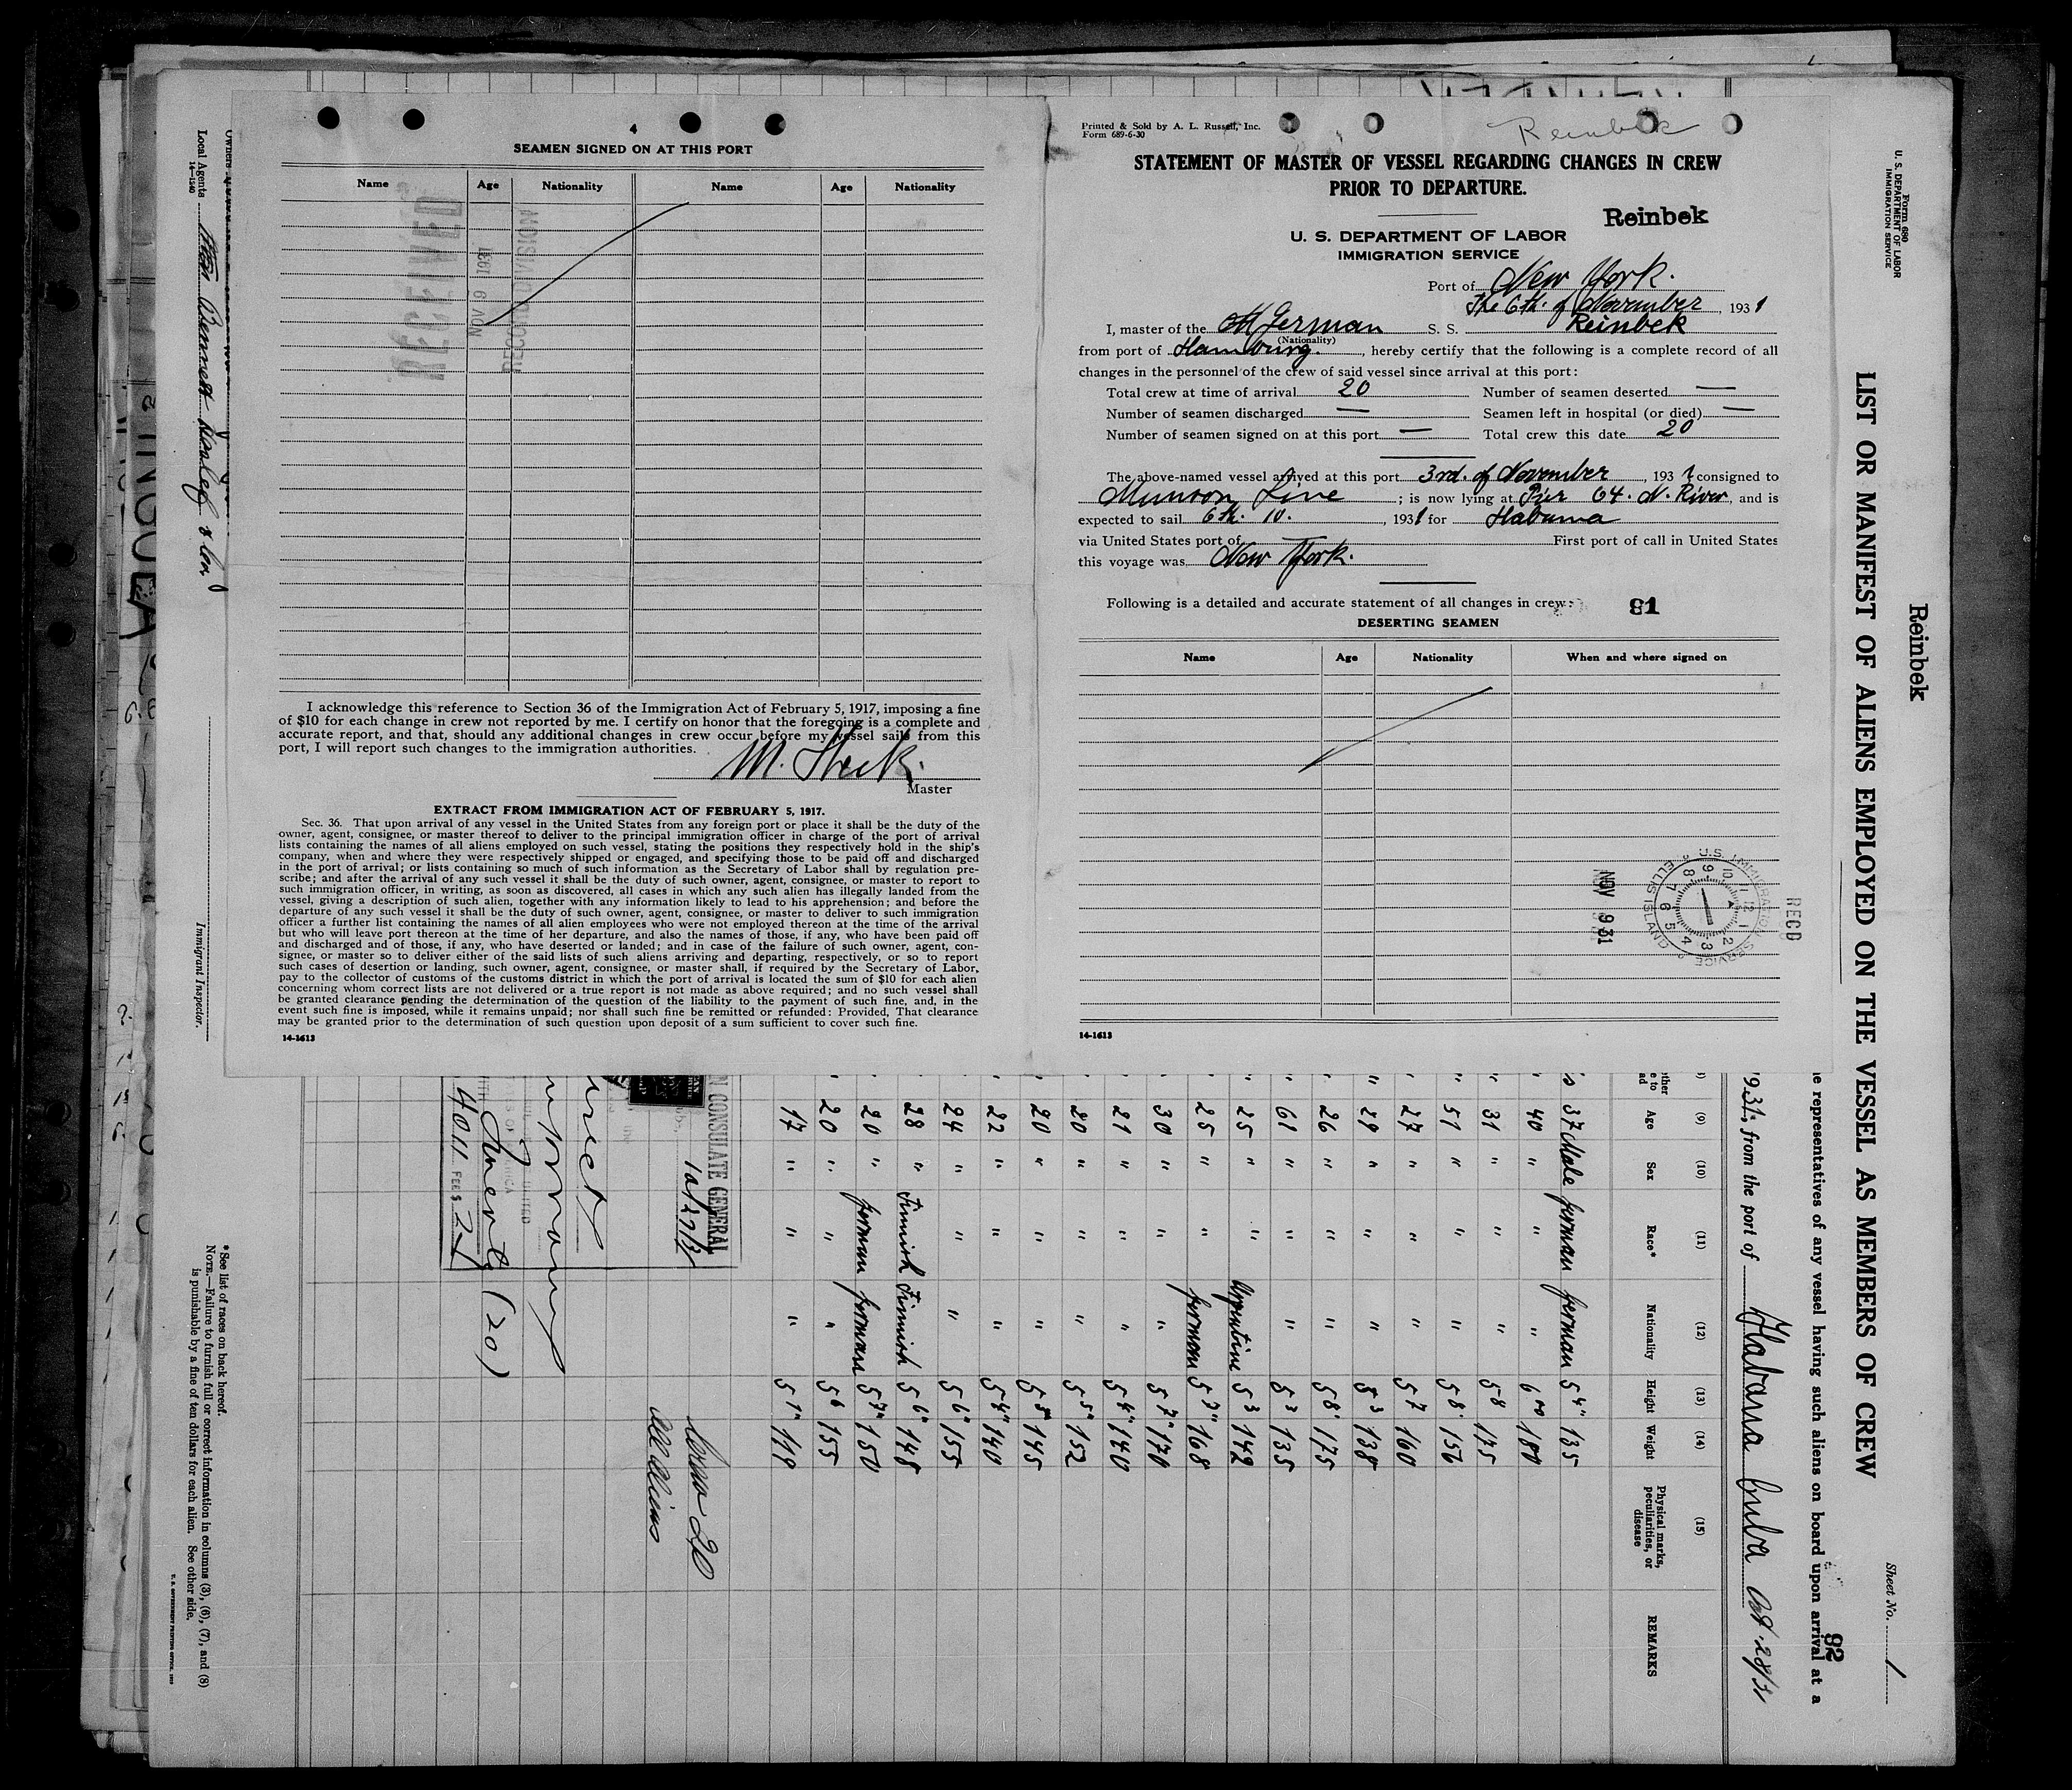 4
SEAMEN SIGNED ON AT THIS PORT
Name Age Nationality Name Age Nationality
RECEIVED
NOV 9 1931
RECORD DIVISION
I acknowledge this reference to Section 36 of the Immigration Act of February 5, 1917, imposing a fine
of $10 for each change in crew not reported by me. I certify on honor that the foregoing is a complete and
accurate report, and that, should any additional changes in crew occur before my vessel sails from this
port, I will report such changes to the immigration authorities.
M.
Master
EXTRACT FROM IMMIGRATION ACT OF FEBRUARY 5, 1917.
Sec. 36. That upon arrival of any vessel in the United States from any foreign port or place it shall be the duty of the
owner, agent, consignee, or master thereof to deliver to the principal immigration officer in charge of the port of arrival
lists containing the names of all aliens employed on such vessel, stating the positions they respectively hold in the ship's
company, when and where they were respectively shipped or engaged, and specifying those to be paid off and discharged
in the port of arrival; or lists containing so much of such information as the Secretary of Labor shall by regulation pre-
scribe; and after the arrival of any such vessel it shall be the duty of such owner, agent, consignee, or master to report to
such immigration officer, in writing, as soon as discovered, all cases in which any such alien has illegally landed from the
vessel, giving a description of such alien, together with any information likely to lead to his apprehension; and before the
departure of any such vessel it shall be the duty of such owner, agent, consignee, or master to deliver to such immigration
officer a further list containing the names of all alien employees who were not employed thereon at the time of the arrival
but who will leave port thereon at the time of her departure, and also the names of those, if any, who have been paid off
and discharged and of those, if any, who have deserted or landed; and in case of the failure of such owner, agent, con-
signee, or master so to deliver either of the said lists of such aliens arriving and departing, respectively, or so to report
such cases of desertion or landing, such owner, agent, consignee, or master shall, if required by the Secretary of Labor,
pay to the collector of customs of the customs district in which the port of arrival is located the sum of $10 for each alien
concerning whom correct lists are not delivered or a true report is not made as above required; and no such vessel shall
be granted clearance pending the determination of the question of the liability to the payment of such fine, and, in the
event such fine is imposed, while it remains unpaid; nor shall such fine be remitted or refunded: Provided, That clearance
may be granted prior to the determination of such question upon deposit of a sum sufficient to cover such fine.
14-1613
Printed & Sold by A. L. Russell, Inc.
Form 689-6-30
Reinbek
STATEMENT OF MASTER OF VESSEL REGARDING CHANGES IN CREW
PRIOR TO DEPARTURE.
Reinbek
U. S. DEPARTMENT OF LABOR
IMMIGRATION SERVICE
Port of New York.
The 6th. of November, 1931
I, master of the German S. S. Reinbek
(Nationality)
from port of Hamburg., hereby certify that the following is a complete record of all
changes in the personnel of the crew of said vessel since arrival at this port:
Total crew at time of arrival 20 Number of seamen deserted —
Number of seamen discharged — Seamen left in hospital (or died) —
Number of seamen signed on at this port — Total crew this date 20
The above-named vessel arrived at this port 3rd. of November, 1931 consigned to
Munson Line; is now lying at Pier 64. N. River, and is
expected to sail 6th. 10., 1931 for Habana
via United States port of First port of call in United States
this voyage was New York.
Following is a detailed and accurate statement of all changes in crew:
81
DESERTING SEAMEN
Name Age Nationality When and where signed on
RECD
U.S. IMMIGRATION SERVICE ELLIS ISLAND
NOV 9 31
14-1613
Form 680
U. S. DEPARTMENT OF LABOR
IMMIGRATION SERVICE
Reinbek
Sheet No. 1
LIST OR MANIFEST OF ALIENS EMPLOYED ON THE VESSEL AS MEMBERS OF CREW
82
representatives of any vessel having such aliens on board upon arrival at a
1931, from the port of Habana Cuba Oct. 28/31
(9) (10) (11) (12) (13) (14) (15)
Age Sex Race* Nationality Height Weight Physical marks, peculiarities, or disease REMARKS
37 Male german german 5 4" 135
40 " " " 6 00 180
31 " " " 5 8 175
51 " " " 5 8" 156
27 " " " 5 7 160
29 " " " 5 3 138
26 " " " 5 8" 175
61 " " " 5 3 135
25 " " Argentine 5 3 142
25 " " german 5 7" 168
30 " " " 5 7" 170
21 " " " 5 4" 140
20 " " " 5 5" 152
20 " " " 5 5" 145
22 " " " 5 4" 140
24 " " " 5 6" 155
28 " Finnish Finnish 5 6" 148
20 " german german 5 7" 150
20 " " " 5 6 155
17 " " " 5 1" 119
CONSULATE GENERAL
Crew 20
All aliens
(20)
4011 FEE $ 2
*See list of races on back hereof.
NOTE.—Failure to furnish full or correct information in columns (3), (6), (7), and (8)
is punishable by a fine of ten dollars for each alien. See other side.
U. S. GOVERNMENT PRINTING OFFICE
Immigrant Inspector.
Local Agents
14—1240